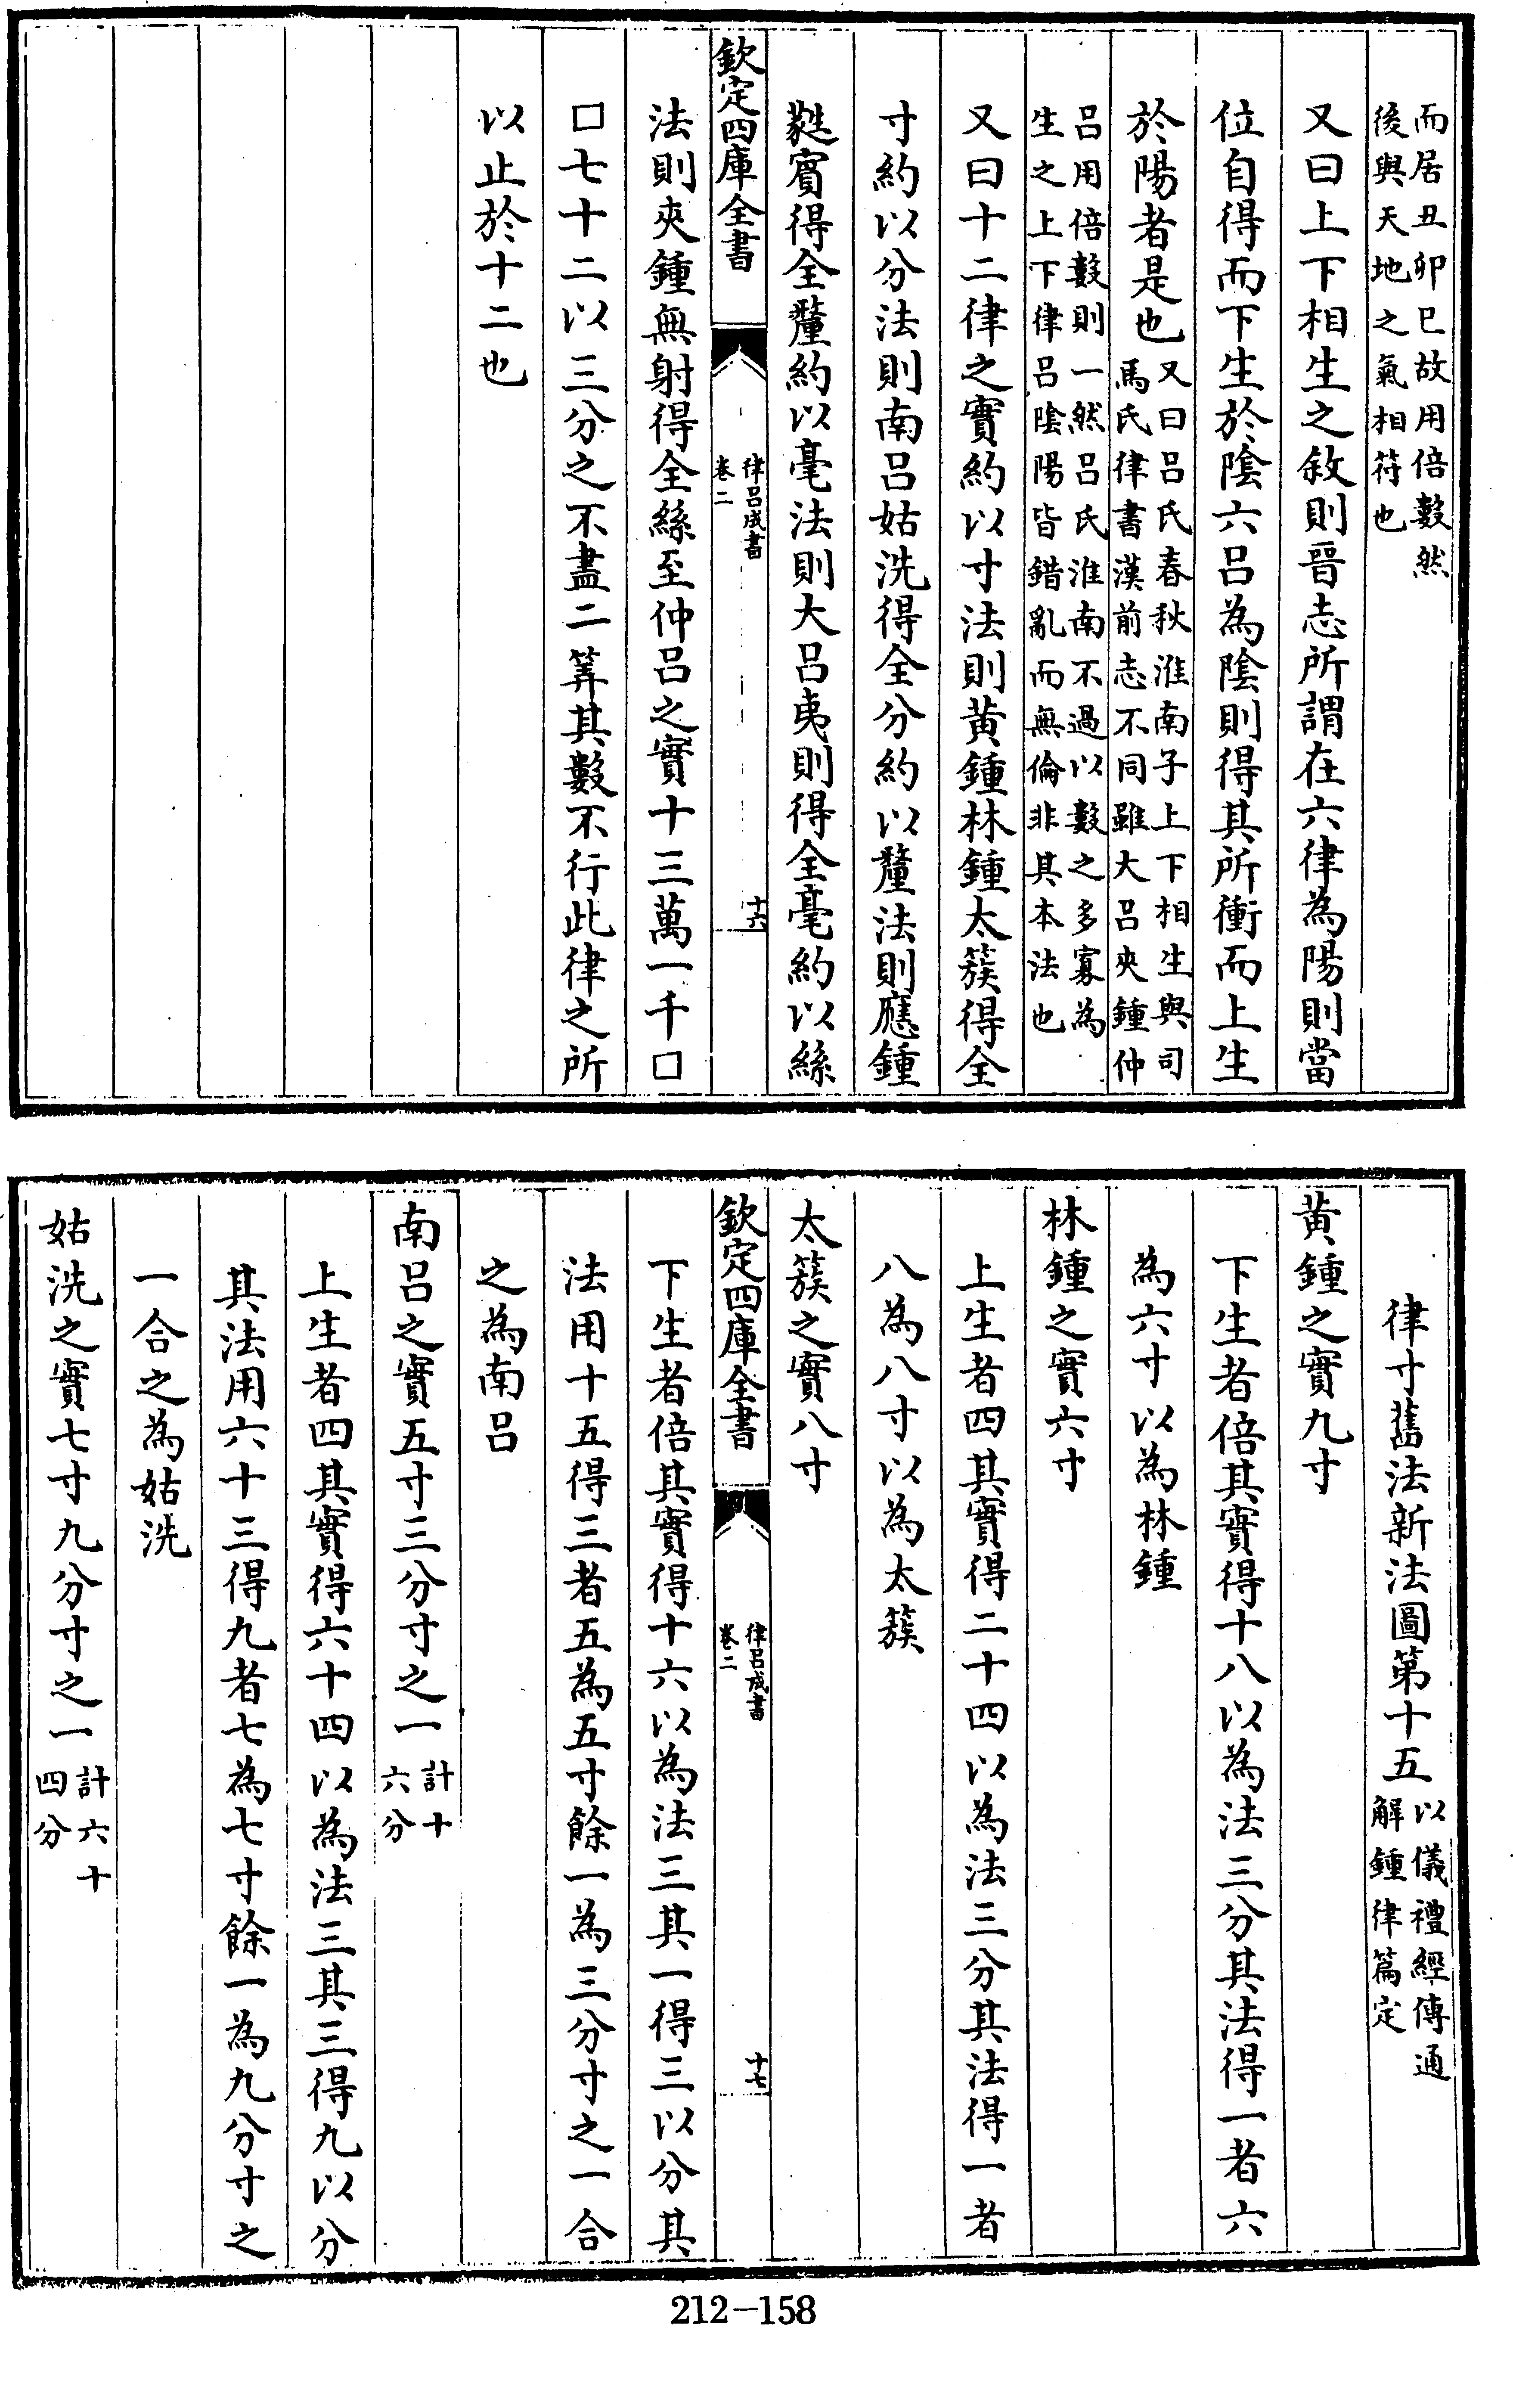 而居丑卯巳故用倍數然
後與天地之氣相符也
又曰上下相生之敘則晉志所謂在六律為陽則當
位自得而下生於陰六呂為陰則得其所衝而上生
於陽者是也又曰呂氏春秋淮南子上下相生與司
馬氏律書漢前志不同雖大呂夾鍾仲
呂用倍數則一然呂氏淮南不過以數之多寡為
生之上下律呂陰陽皆錯亂而無倫非其本法也
又曰十二律之實約以寸法則黃鍾林鍾太簇得全
寸約以分法則南呂姑洗得全分約以釐法則應鍾
蕤賓得全釐約以毫法則大呂夷則得全毫約以絲
欽定四庫全書
律呂成書
卷二
十六
法則夾鍾無射得全絲至仲呂之實十三萬一千□
□七十二以三分之不盡二筭其數不行此律之所
以止於十二也
律寸舊法新法圖第十五以儀禮經傳通
解鍾律篇定
黃鍾之實九寸
下生者倍其實得十八以為法三分其法得一者六
為六寸以為林鍾
林鍾之實六寸
上生者四其實得二十四以為法三分其法得一者
八為八寸以為太簇
太簇之實八寸
欽定四庫全書
律呂成書
卷二
十七
下生者倍其實得十六以為法三其一得三以分其
法用十五得三者五為五寸餘一為三分寸之一合
之為南呂
南呂之實五寸三分寸之一計十
六分
上生者四其實得六十四以為法三其三得九以分
其法用六十三得九者七為七寸餘一為九分寸之
一合之為姑洗
姑洗之實七寸九分寸之一計六十
四分
212-158